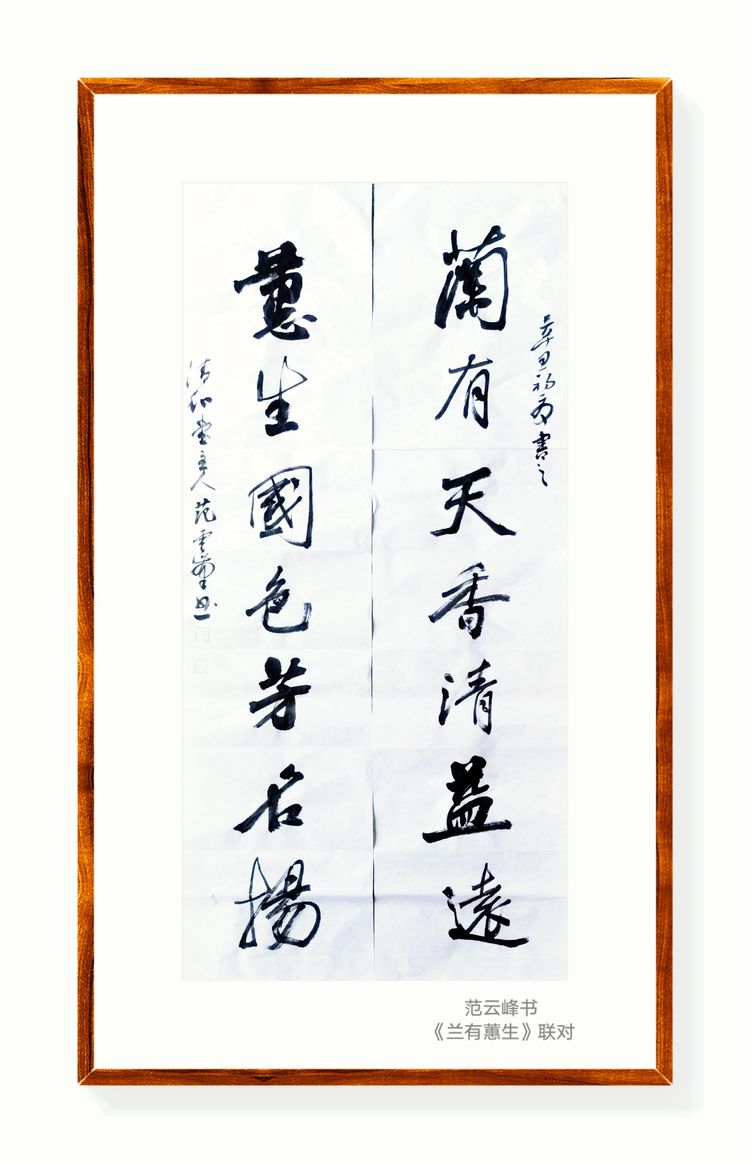 蘭有天香清益遠
辛丑初夏書之
蕙生國色芳名揚
清和堂主人范雲峰書
范云峰书
《兰有蕙生》联对